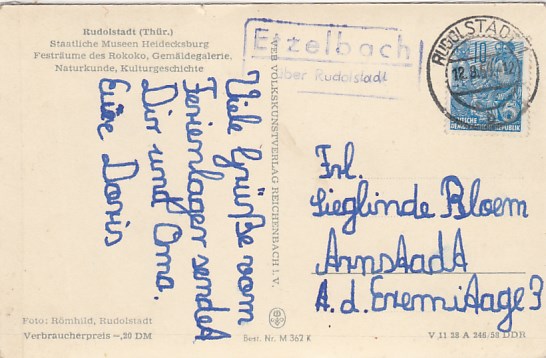 Rudolstadt (Thür.)
Staatliche Museen Heidecksburg
Festräume des Rokoko, Gemäldegalerie,
Naturkunde, Kulturgeschichte
Viele Grüße vom
Ferienlager sendet
Dir und Oma.
Eure Doris
Foto: Römhild, Rudolstadt
Verbraucherpreis -,20 DM
VEB VOLKSKUNSTVERLAG REICHENBACH I. V.
Best. Nr. M 362 K
Etzelbach
über Rudolstadt
RUDOLSTADT
12.8.
DEUTSCHE
DEMOKRATISCHE REPUBLIK
Frl.
Sieglinde Bloem
Arnstadt
A. d. Eremitage 3
V 11 28 A 246/58 DDR